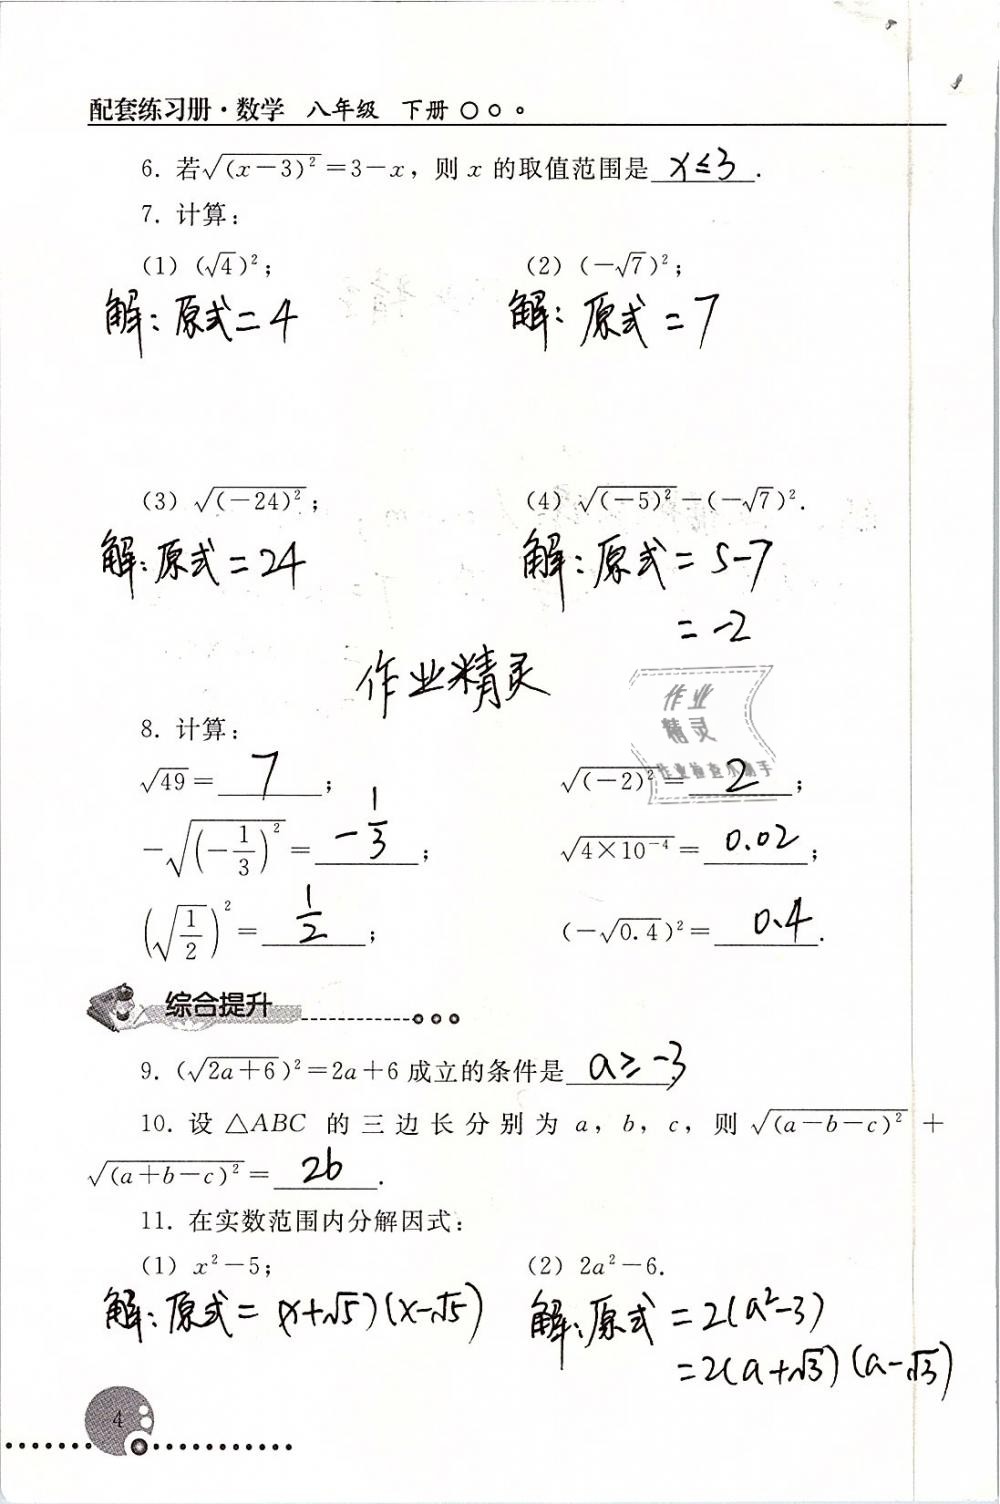 配套练习册·数学 八年级 下册
6. 若√(x-3)²=3-x，则 x 的取值范围是 x≤3.
7. 计算：
(1) (√4)²； (2) (-√7)²；
解：原式=4 解：原式=7
(3) √(-24)²； (4) √(-5)²-(-√7)².
解：原式=24 解：原式=5-7
=-2
作业精灵
作业
精灵
作业检查小助手
8. 计算：
√49=7； √(-2)²=2；
-√(-1/3)²=-1/3； √4×10⁻⁴=0.02；
(√1/2)²=1/2； (-√0.4)²=0.4.
综合提升
9. (√2a+6)²=2a+6 成立的条件是 a≥-3.
10. 设 △ABC 的三边长分别为 a，b，c，则 √(a-b-c)² +
√(a+b-c)²=2b.
11. 在实数范围内分解因式：
(1) x²-5； (2) 2a²-6.
解：原式=(x+√5)(x-√5) 解：原式=2(a²-3)
=2(a+√3)(a-√3)
4